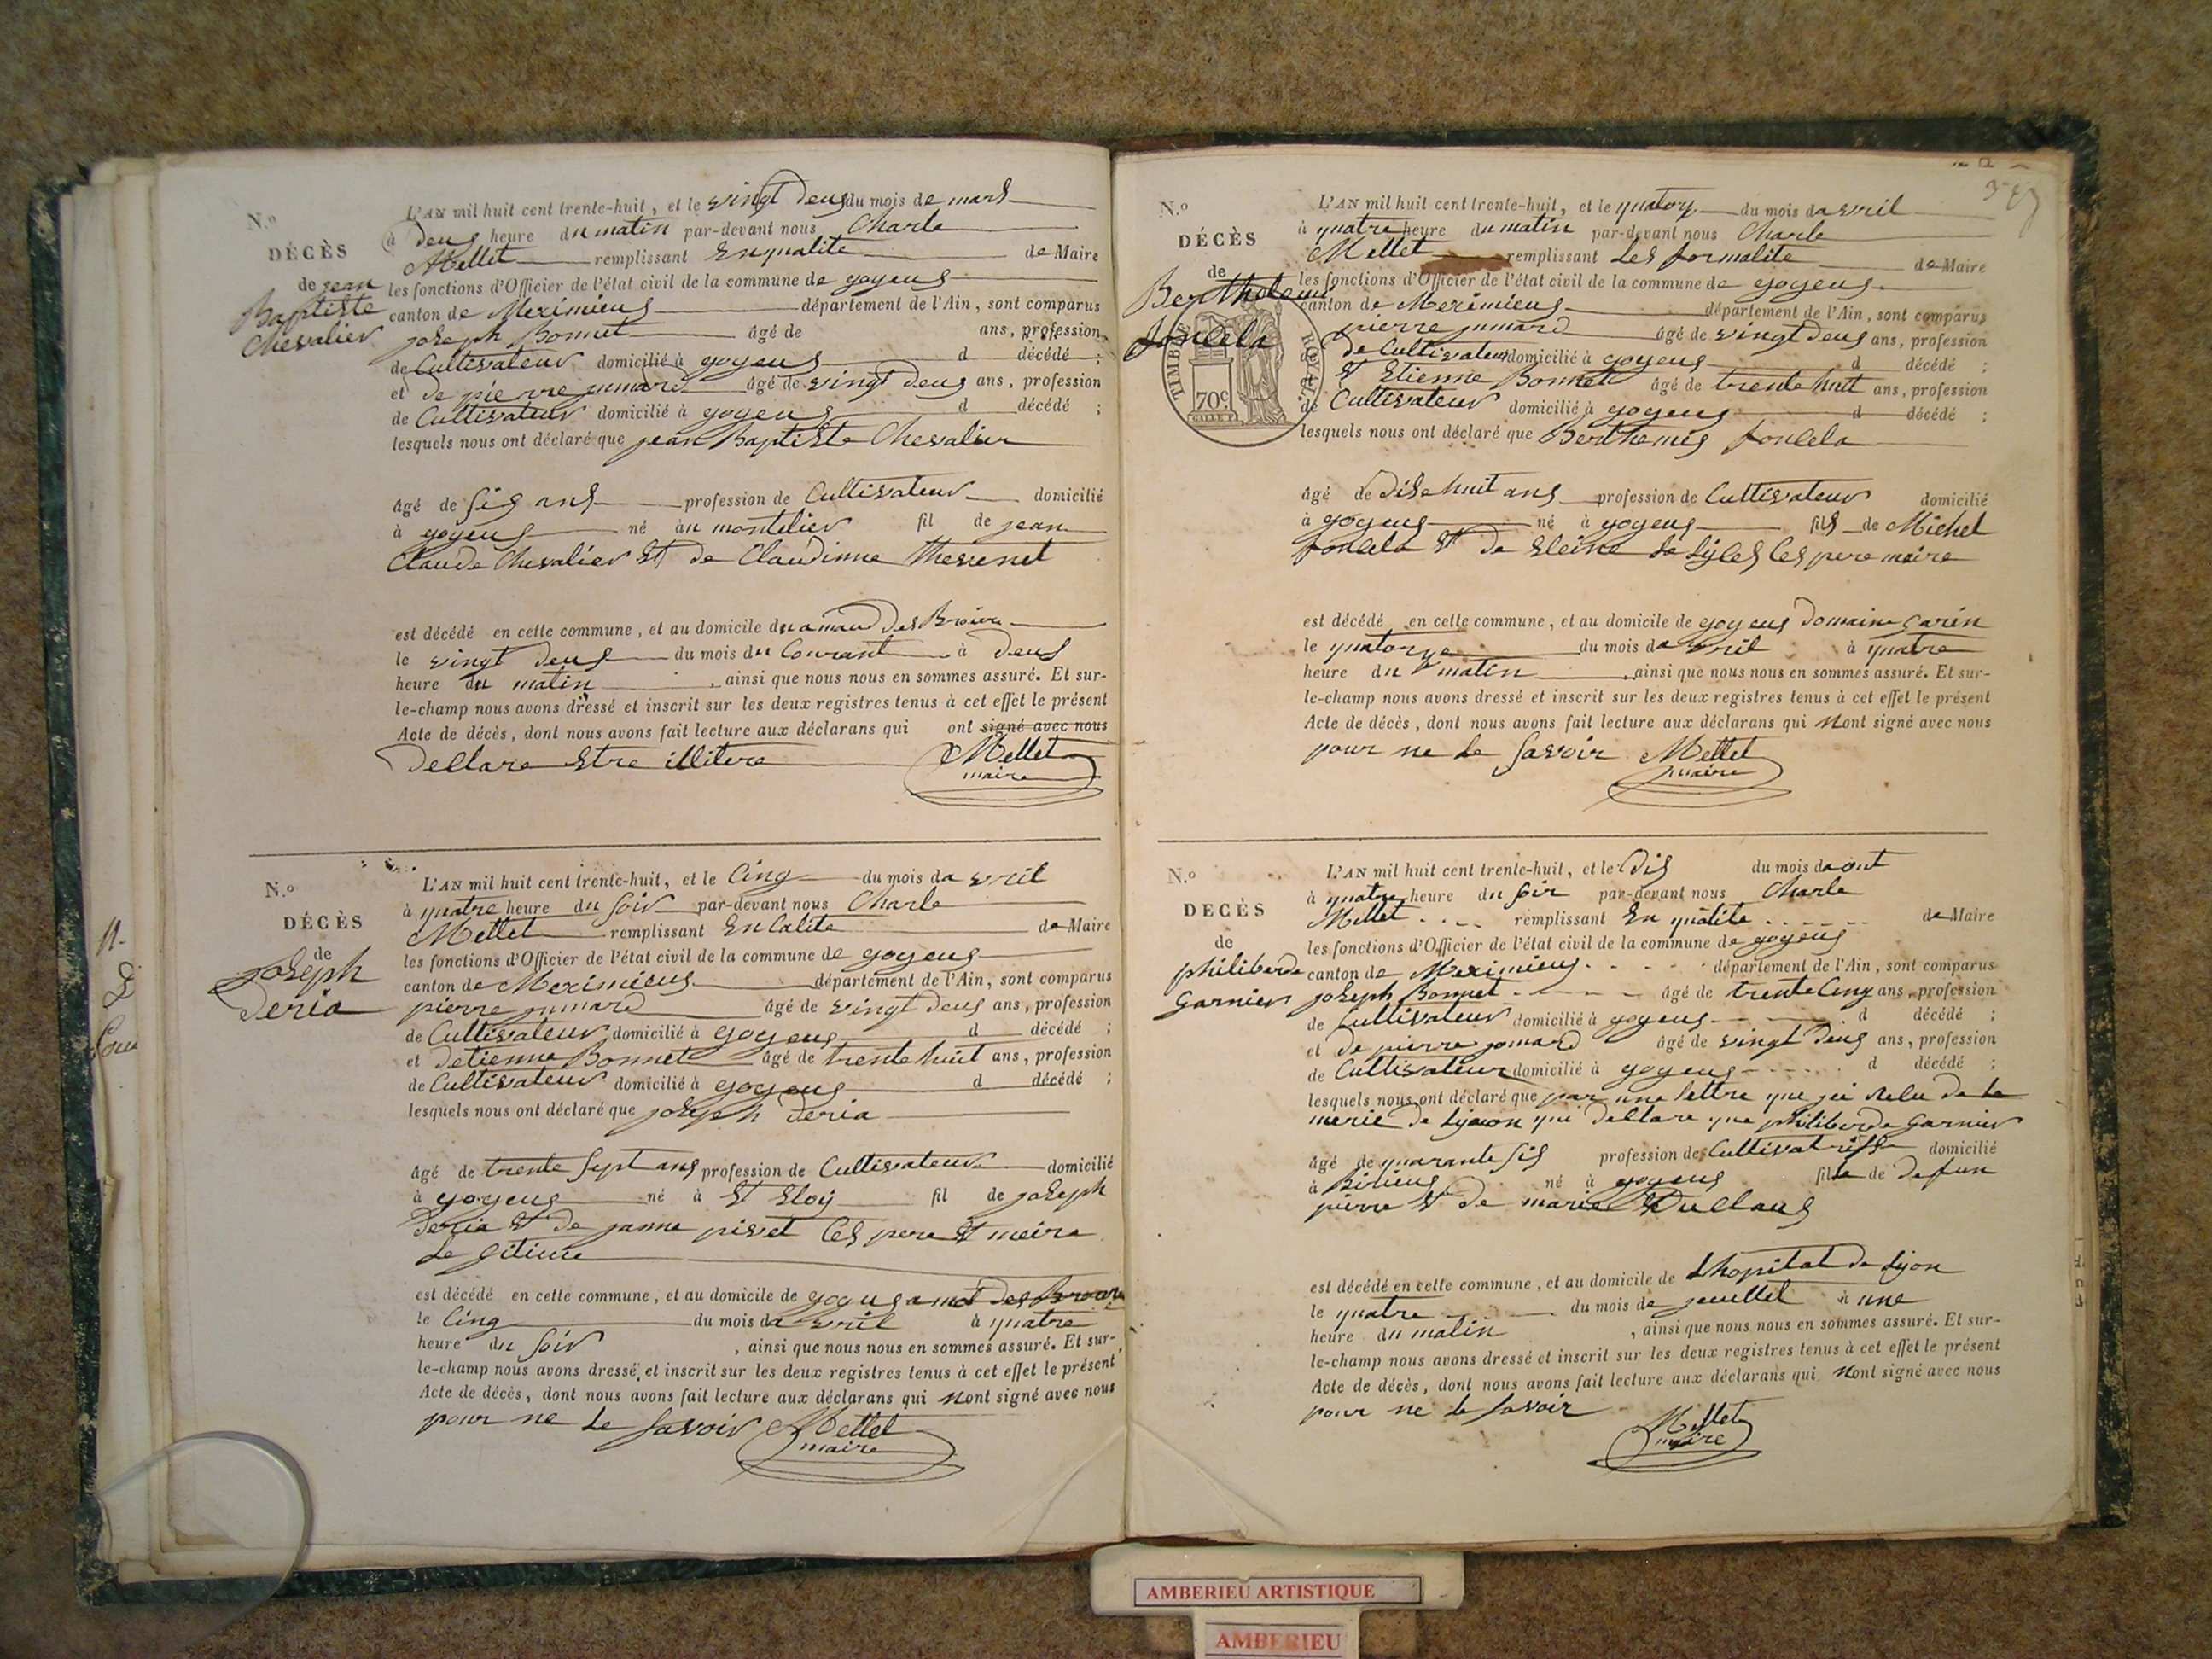 N.o
DÉCÈS
de jean
Baptiste
Chevalier
L'AN mil huit cent trente-huit, et le vingt deus du mois de mars
à deus heure du matin par-devant nous Charle
Mellet remplissant En qualite de Maire
les fonctions d'Officier de l'état civil de la commune de goyeus
canton de Meximieus département de l'Ain, sont comparus
joseph Bonnet âgé de ans, profession
de Cultivateur domicilié à goyeus d décédé ;
et de pierre jumard âgé de vingt deus ans, profession
de Cultivateur domicilié à goyeus d décédé ;
lesquels nous ont déclaré que jean Baptiste Chevalier
âgé de sis ans profession de Cultivateur domicilié
à goyeus né au montelier fil de jean
Claude Chevalier Et de Claudinne Thevenet
est décédé en cette commune, et au domicile du
le vingt deus du mois du Courant à deus
heure du matin , ainsi que nous nous en sommes assuré. Et sur-
le-champ nous avons dressé et inscrit sur les deux registres tenus à cet effet le présent
Acte de décès, dont nous avons fait lecture aux déclarans qui ont signé avec nous
Dellare Etre illitere Mellet
maire
N.o
DÉCÈS
de
joseph
deria
L'AN mil huit cent trente-huit, et le Cinq du mois da vril
à quatre heure du soir par-devant nous Charle
Mellet remplissant En Calite de Maire
les fonctions d'Officier de l'état civil de la commune de goyeus
canton de Meximieus département de l'Ain, sont comparus
pierre jumard âgé de vingt deus ans, profession
de Cultivateur domicilié à goyeus d décédé ;
et detienne Bonnet âgé de trente huit ans, profession
de Cultivateur domicilié à goyeus d décédé ;
lesquels nous ont déclaré que joseph deria
âgé de trente sept ans profession de Cultivateur domicilié
à goyeus né à St Eloy fil de joseph
deria Et de janne pivet Ces pere Et meire
Le gitime
est décédé en cette commune, et au domicile de
le Cinq du mois da vril à quatre
heure du soir , ainsi que nous nous en sommes assuré. Et sur-
le-champ nous avons dressé et inscrit sur les deux registres tenus à cet effet le présent
Acte de décès, dont nous avons fait lecture aux déclarans qui Nont signé avec nous
pour ne Le savoir Mellet
maire
N.o
DÉCÈS
de
Bertholemi
fonlela
TIMBRE ROYAL
70c
L'AN mil huit cent trente-huit, et le quatorz du mois da vril
à quatre heure du matin par-devant nous Charle
Mellet remplissant Les formalite de Maire
les fonctions d'Officier de l'état civil de la commune de goyeus
canton de Meximieus département de l'Ain, sont comparus
pierre jumard âgé de vingt deus ans, profession
de Cultivateur domicilié à goyeus d décédé ;
Et Etienne Bonnet âgé de trente huit ans, profession
de Cultivateur domicilié à goyeus d décédé ;
lesquels nous ont déclaré que Berthemis fonlela
âgé de Dise huit ans profession de Cultivateur domicilié
à goyeus né à goyeus fils de Michel
fonlela Et de ces pere meire
est décédé en cette commune, et au domicile de goyeus Domaine garin
le quatorze du mois da vril à quatre
heure du matin , ainsi que nous nous en sommes assuré. Et sur-
le-champ nous avons dressé et inscrit sur les deux registres tenus à cet effet le présent
Acte de décès, dont nous avons fait lecture aux déclarans qui Nont signé avec nous
pour ne Le savoir Mellet
maire
N.o
DÉCÈS
de
philiberde
garnier
L'AN mil huit cent trente-huit, et le Dis du mois da out
à quatre heure du soir par-devant nous Charle
Mellet remplissant En qualite de Maire
les fonctions d'Officier de l'état civil de la commune de goyeus
canton de Meximieus département de l'Ain, sont comparus
joseph Bonnet âgé de trente Cinq ans, profession
de Cultivateur domicilié à goyeus d décédé ;
et de pierre jomard âgé de vingt deus ans, profession
de Cultivateur domicilié à goyeus d décédé ;
lesquels nous ont déclaré que par une lettre que jai relu de la
merie de Lyion qui dellare que philiberde garnier
âgé de quarante sis profession de Cultivatrisse domicilié
à Birieus né à goyeus fille de defun
pierre Et de marie Dullaus
est décédé en cette commune, et au domicile de Lhopital de Lyon
le quatre du mois de jeuillet à une
heure du matin , ainsi que nous nous en sommes assuré. Et sur-
le-champ nous avons dressé et inscrit sur les deux registres tenus à cet effet le présent
Acte de décès, dont nous avons fait lecture aux déclarans qui Nont signé avec nous
pour ne le savoir Mellet
maire
AMBERIEU ARTISTIQUE
AMBERIEU